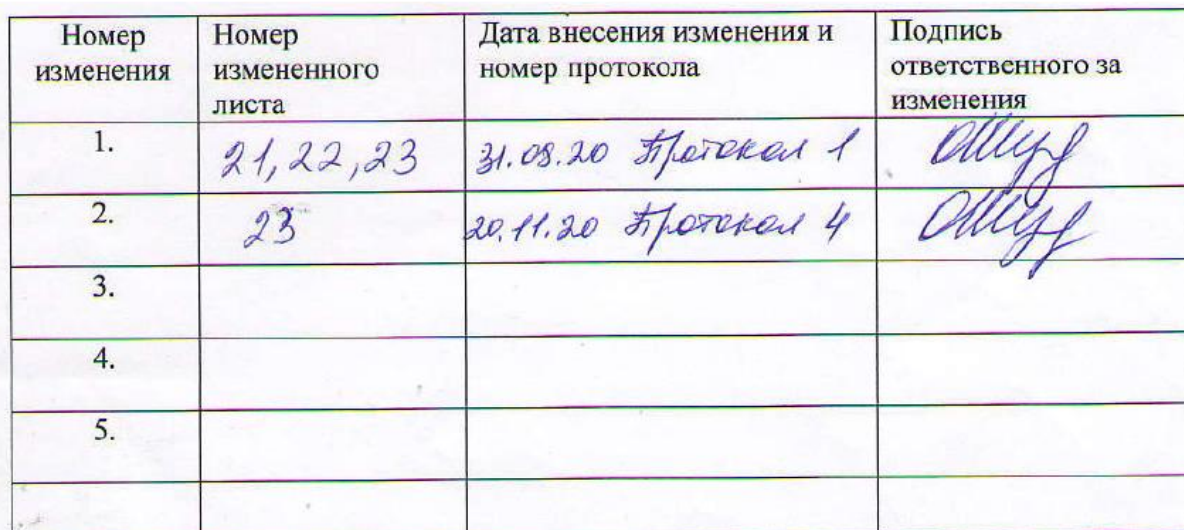 Номер изменения
Номер измененного листа
Дата внесения изменения и номер протокола
Подпись ответственного за изменения
1.
21, 22, 23
31.08.20 Протокол 1
2.
23
20.11.20 Протокол 4
3.
4.
5.